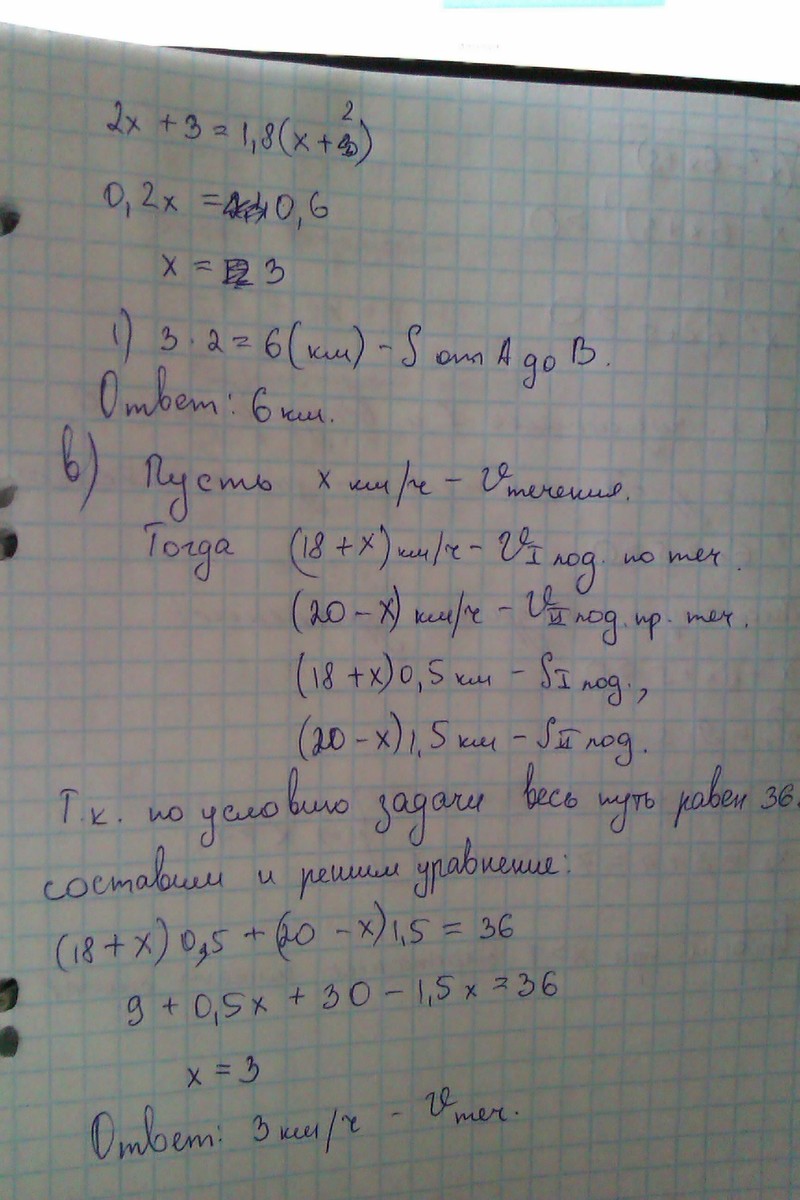 2x + 3 = 1,8(x + 2)
0,2x = 0,6
x = 3
1) 3 · 2 = 6 (км) – S от A до B.
Ответ: 6 км.
в) Пусть x км/ч – Vтечения.
Тогда (18 + x) км/ч – VI под. по теч.
(20 – x) км/ч – VII под. пр. теч.
(18 + x) 0,5 км – SI под.,
(20 – x) 1,5 км – SII под.
Т.к. по условию задачи весь путь равен 36,
составим и решим уравнение:
(18 + x) 0,5 + (20 – x) 1,5 = 36
9 + 0,5x + 30 – 1,5x = 36
x = 3
Ответ: 3 км/ч – Vтеч.